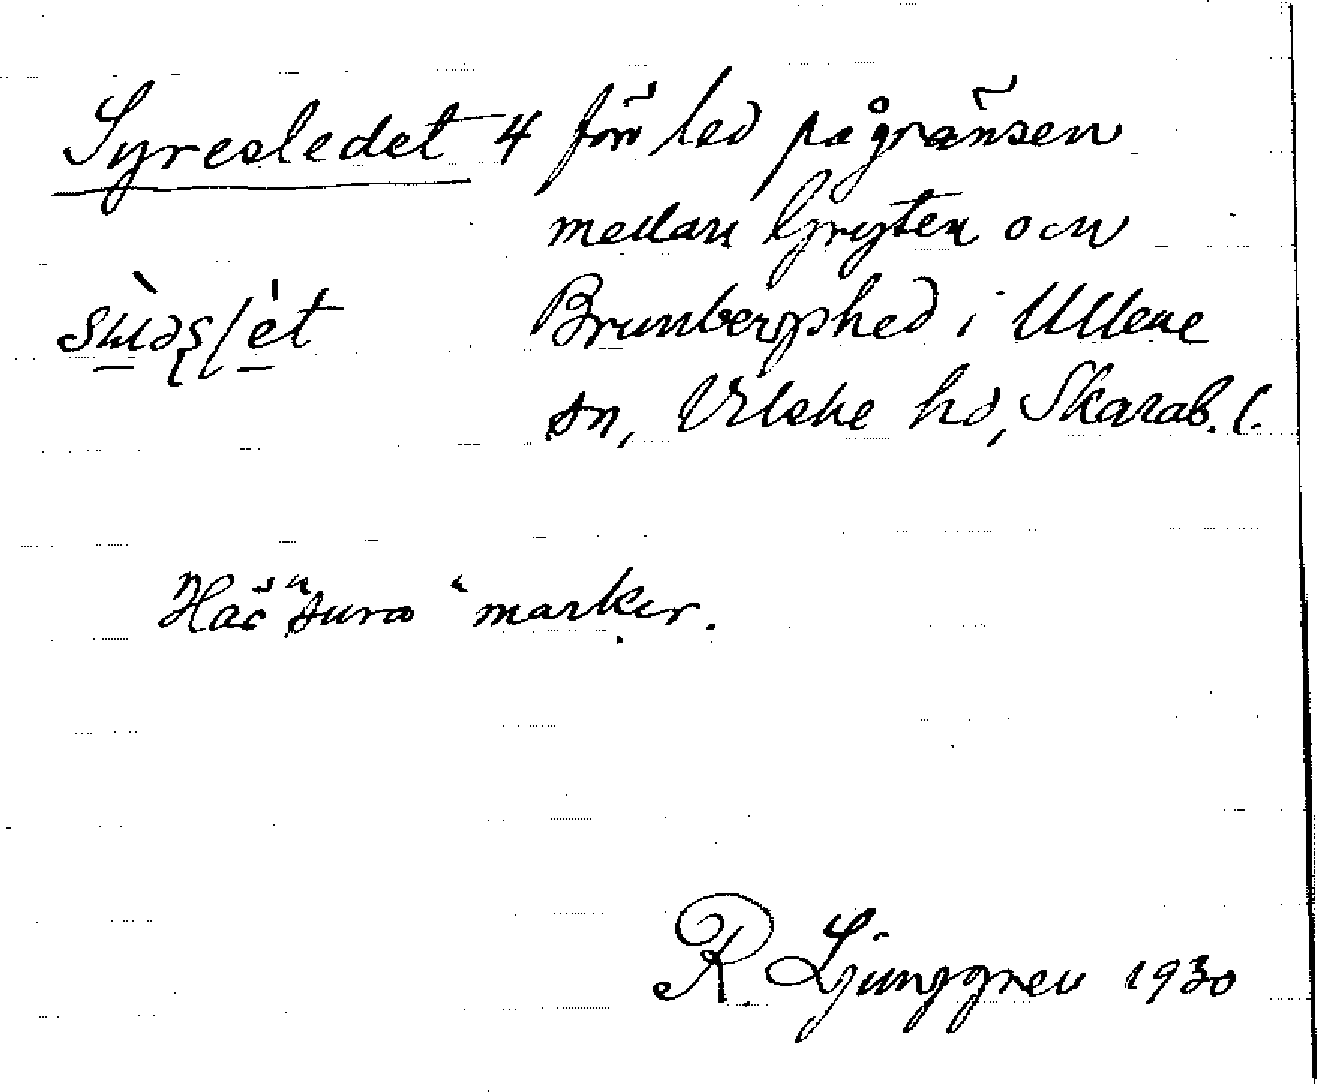 Syresledet 4 förr led på gränsen
mellan Gryten och
Brunbergshed i Ullene
sn, Vilske hd, Skarab. l.
Har "sura" marker.
R Ljunggren 1930